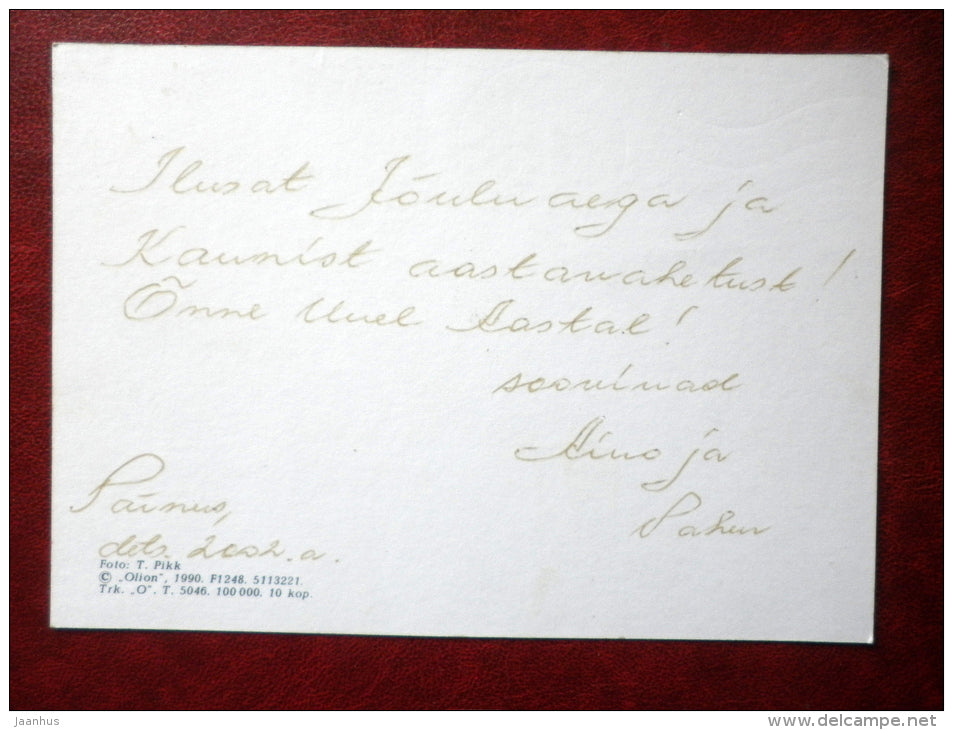 Ilusat Jõulu aega ja
Kaunist aastavahetust!
Õnne Uuel Aastal!
soovivad
Aino ja
Pärnus,
dets. 2002.a.
Foto: T. Pikk
© „Olion", 1990. F1248. 5113221.
Trk. „O". T. 5046. 100 000. 10 kop.
Jaanhus
www.delcampe.net